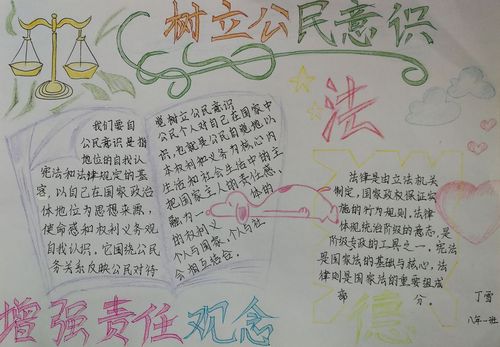 树立公民意识
我们要自
公民意识是指
地位的自我认
宪法和法律规定的基
容,以自己在国家政治
体地位为思想来源,
使命感和权利义务观
自我认识,它围绕公民
务关系反映公民对待
觉树立公民意识
公民个人对自己在国家中
识,也就是公民自觉地以
本权利和义务为核心内
生活和社会生活中的主
把国家主人的责任感、
融为一体的
的权利义
个人与国家,个人与社
会相互结合。
法
法律是由立法机关
制定,国家政权保证实
施的行为规则,法律
体现统治阶级的意志,是
阶级专政的工具之一,宪法
是国家法的基础与核心,法
律则是国家法的重要组成
部分。
德
增强责任观念
丁雪
八年一班